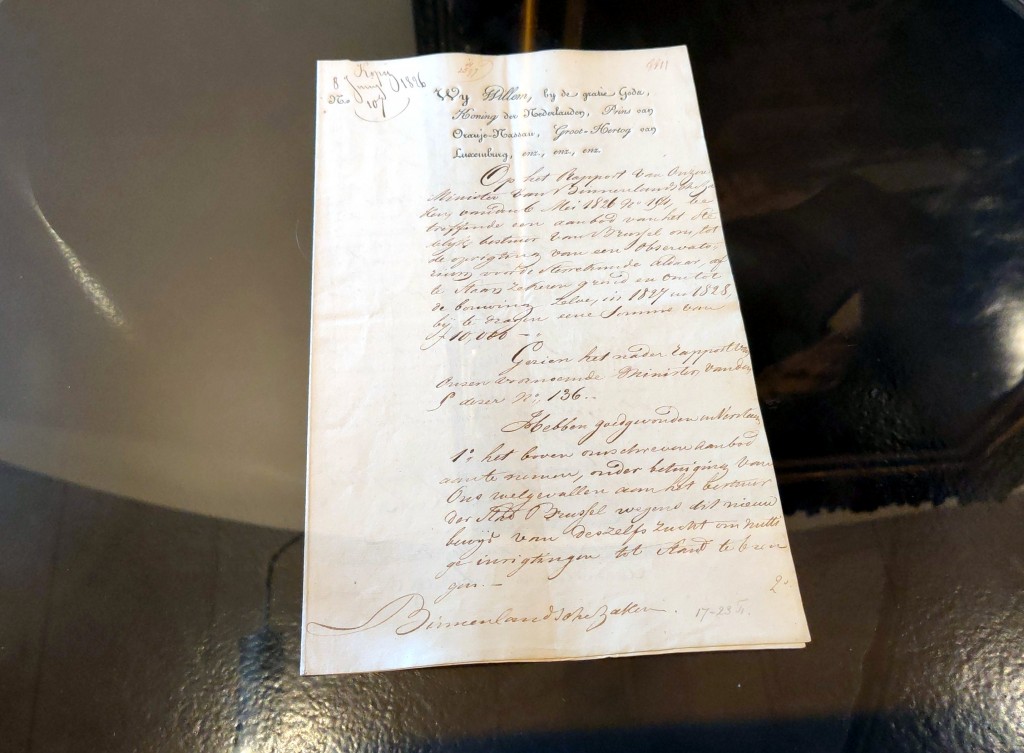 Kopij
8 Junij 1826
No. 104
Wy Willem, by de gratie Gods,
Koning der Nederlanden, Prins van
Oranje-Nassau, Groot-Hertog van
Luxemburg, enz., enz., enz.
Op het Rapport van Onzen
Minister van Binnenlandsche Za
ken van den 6 Mei 1826 No 194, be
treffende een aanbod van het Ste
delijk bestuur van Brussel om, tot
de oprigting van een Observato
rium voor de Sterrekunde aldaar, af
te staan zekeren grond en om tot
de bouwing zelve, in 1827 en 1828,
bij te dragen eene somme van
f 10,000 -,
Gezien het nader rapport van
onzen voornoemde Minister, van den
dezer No. 136..
Hebben goedgevonden en Verstaan
1o het boven omschreven aanbod
aan te nemen, onder betuiging van
Ons welgevallen aan het bestuur
der Stad Brussel wegens dit nieuw
bewijs van deszelfs zucht om nutti
ge inrigtingen tot stand te bren
gen.-
2o
Binnenlandsche Zaken.
17-23